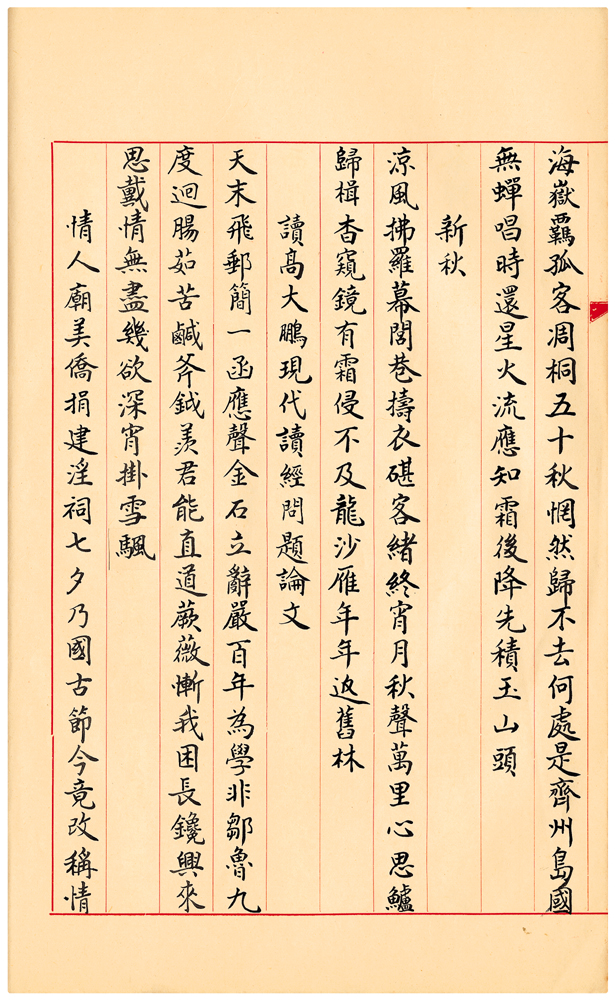 海嶽羈孤客凋桐五十秋惘然歸不去何處是齊州島國
無蟬唱時還星火流應知霜後降先積玉山頭
新秋
涼風拂羅幕閭巷擣衣碪客緒終宵月秋聲萬里心思鱸
歸楫杳窺鏡有霜侵不及龍沙雁年年返舊林
讀高大鵬現代讀經問題論文
天末飛郵簡一函應聲金石立辭嚴百年為學非鄒魯九
度迴腸茹苦鹹斧鉞羨君能直道蕨薇慚我困長鑱興來
思戴情無盡幾欲深宵掛雪颿
情人廟美僑捐建淫祠七夕乃國古節今竟改稱情